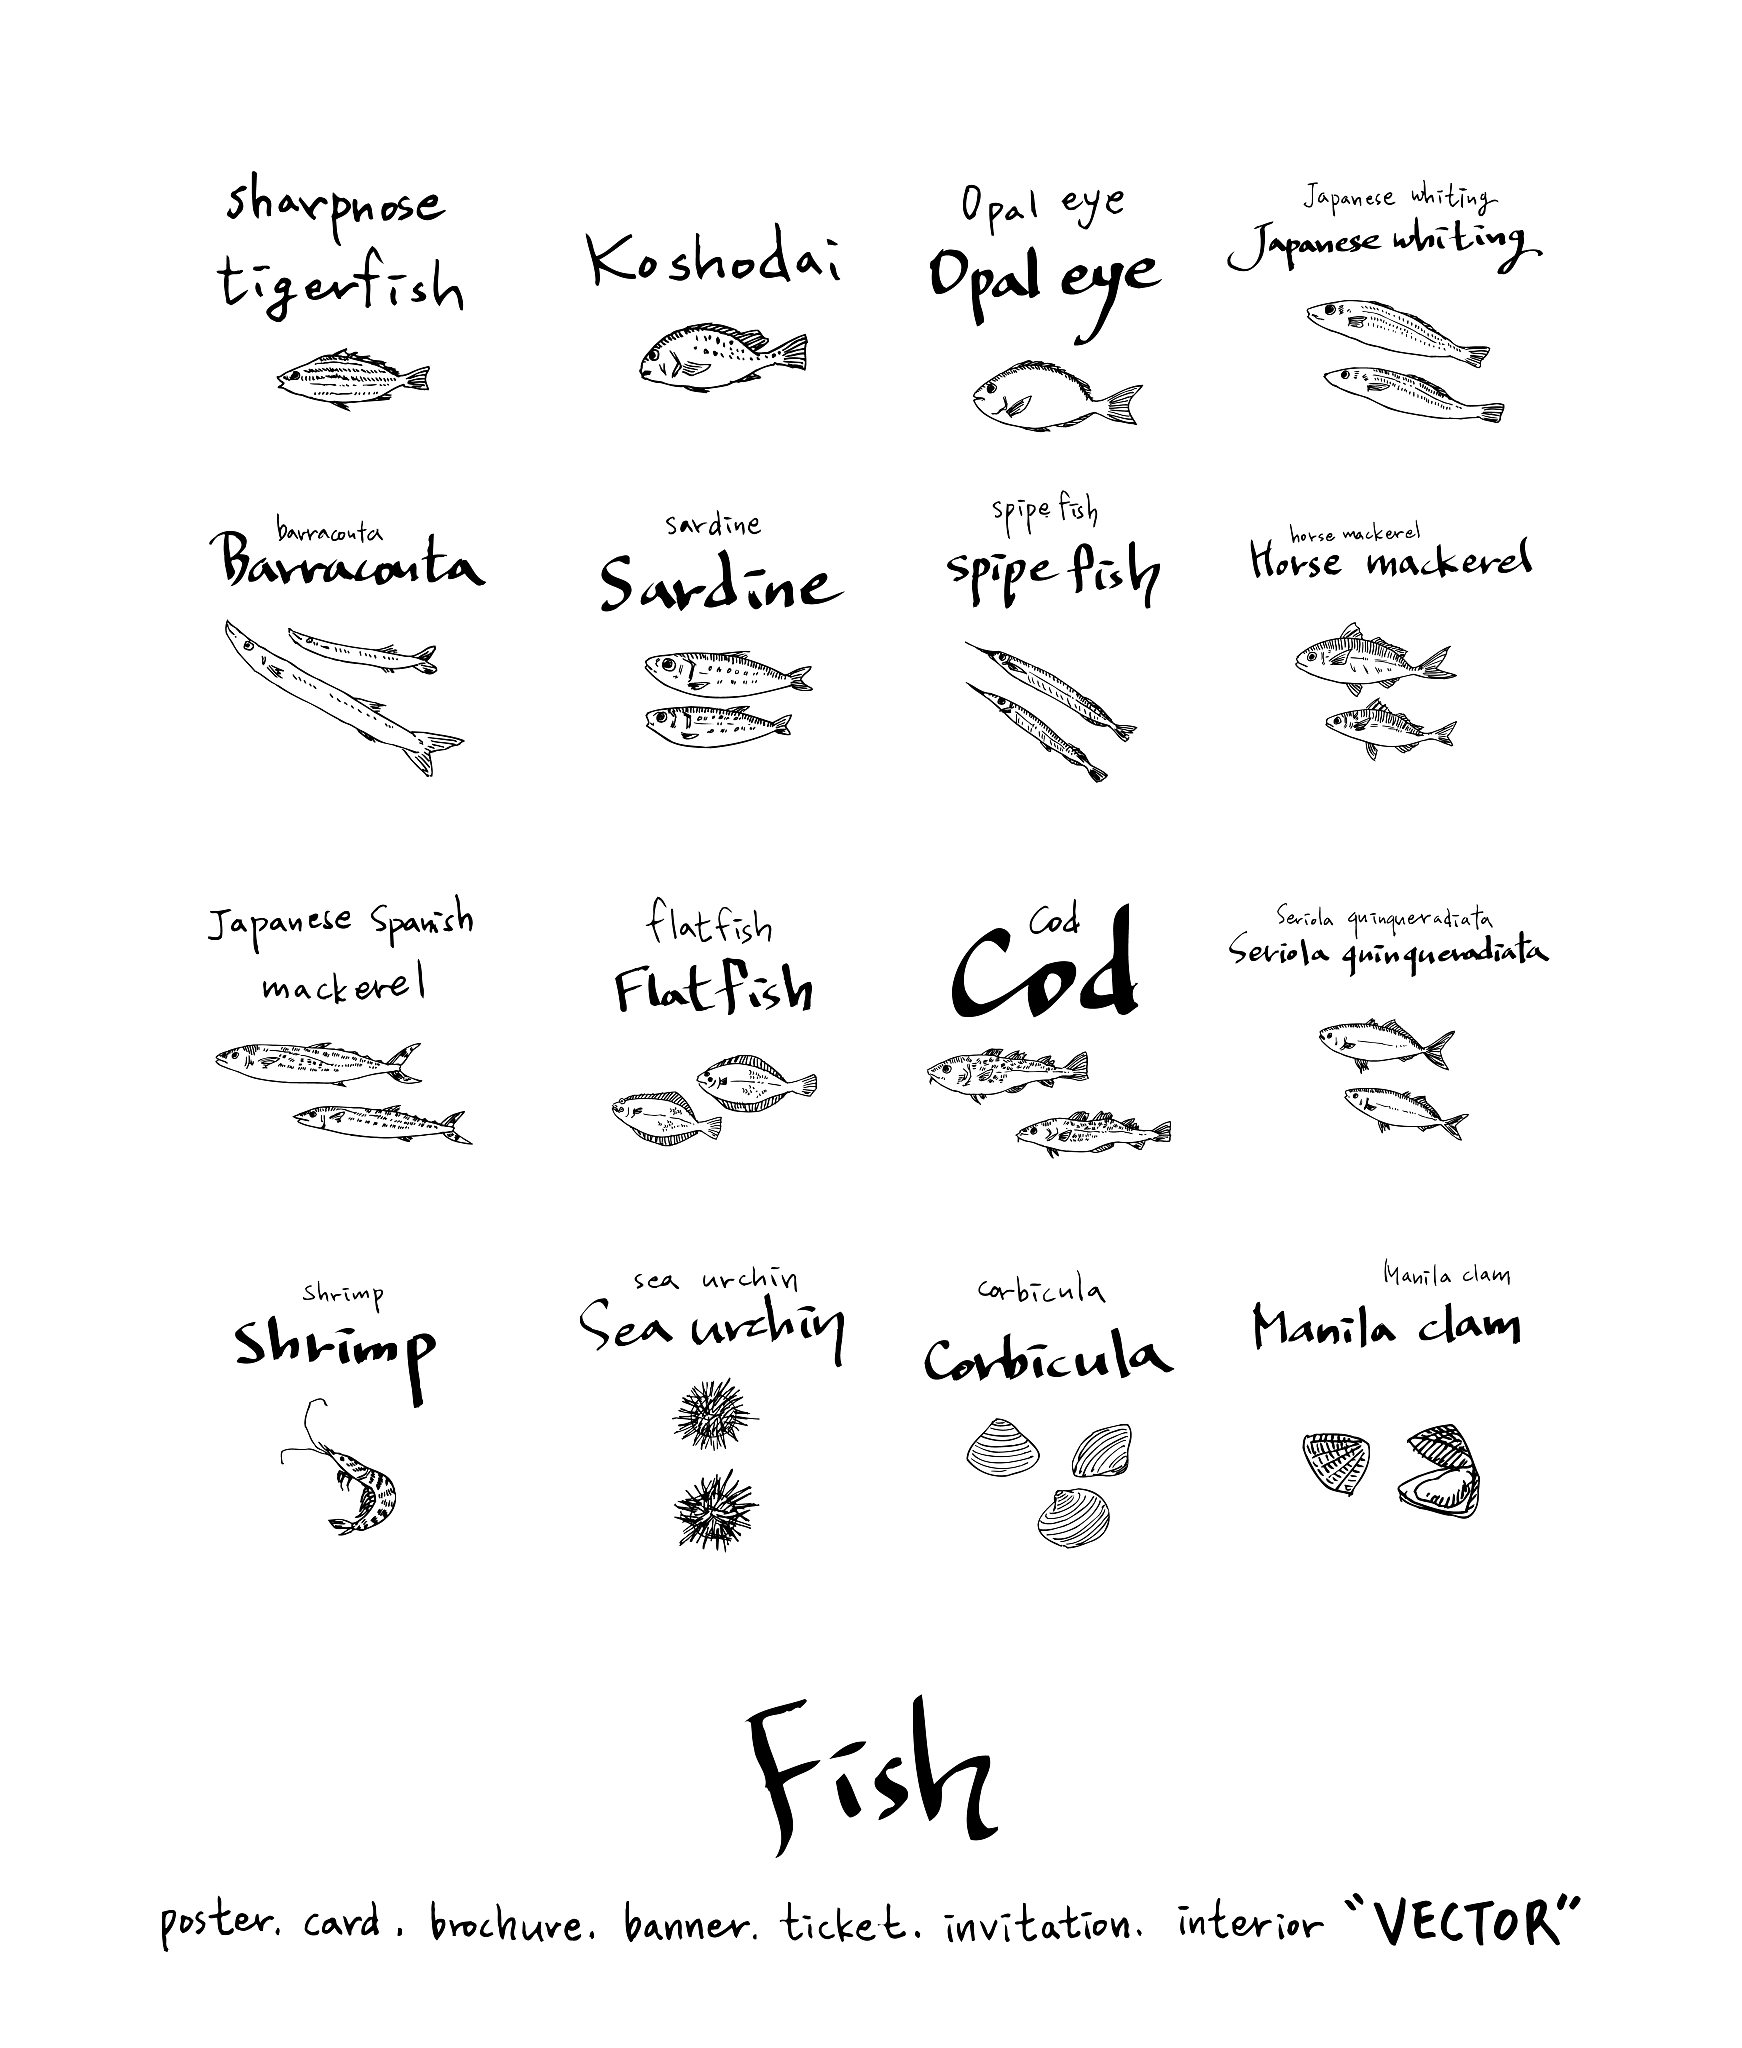 sharpnose
tigerfish
Koshodai
Opal eye
Opal eye
Japanese whiting
Japanese whiting
barracouta
Barracouta
sardine
Sardine
spipe fish
spipe fish
horse mackerel
Horse mackerel
Japanese Spanish
mackerel
flatfish
Flatfish
Cod
Cod
Seriola quinqueradiata
Seriola quinqueradiata
Shrimp
Shrimp
sea urchin
Sea urchin
corbicula
Corbicula
Manila clam
Manila clam
Fish
poster. card. brochure. banner. ticket. invitation. interior "VECTOR"